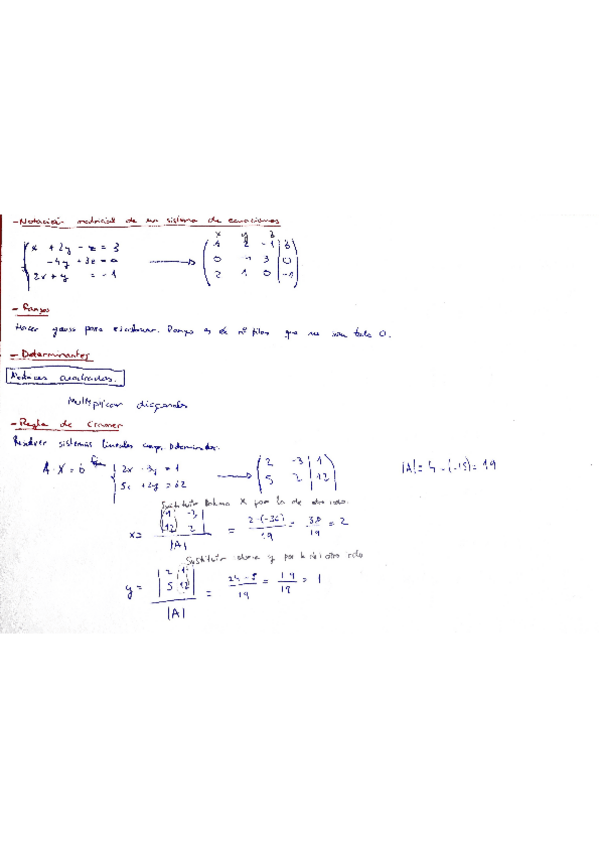 - Notación matricial de un sistema de ecuaciones
x y z
x + 2y - z = 3
-4y + 3z = 0
2x + y = -1
1 2 -1 | 3
0 3 | 0
2 1 0 | -1
- Rangos
Hacer gauss para escalonar. Rango es el nº filas que no sean todo 0.
- Determinantes
Matrices cuadradas.
Multiplicar diagonales
- Regla de Cramer
Resolver sistemas lineales comp. Determinados.
A · X = b
2x - 3y = 1
5x + 2y = 12
2 -3 | 1
5 2 | 12
|A| = 4 - (-15) = 19
Sustituir x por la de
x = |1 -3| |12 2| / |A| = 2-(-36) / 19 = 38 / 19 = 2
Sustituir y por
y = |2 1| |5 12| / |A| = 24-5 / 19 = 19 / 19 = 1